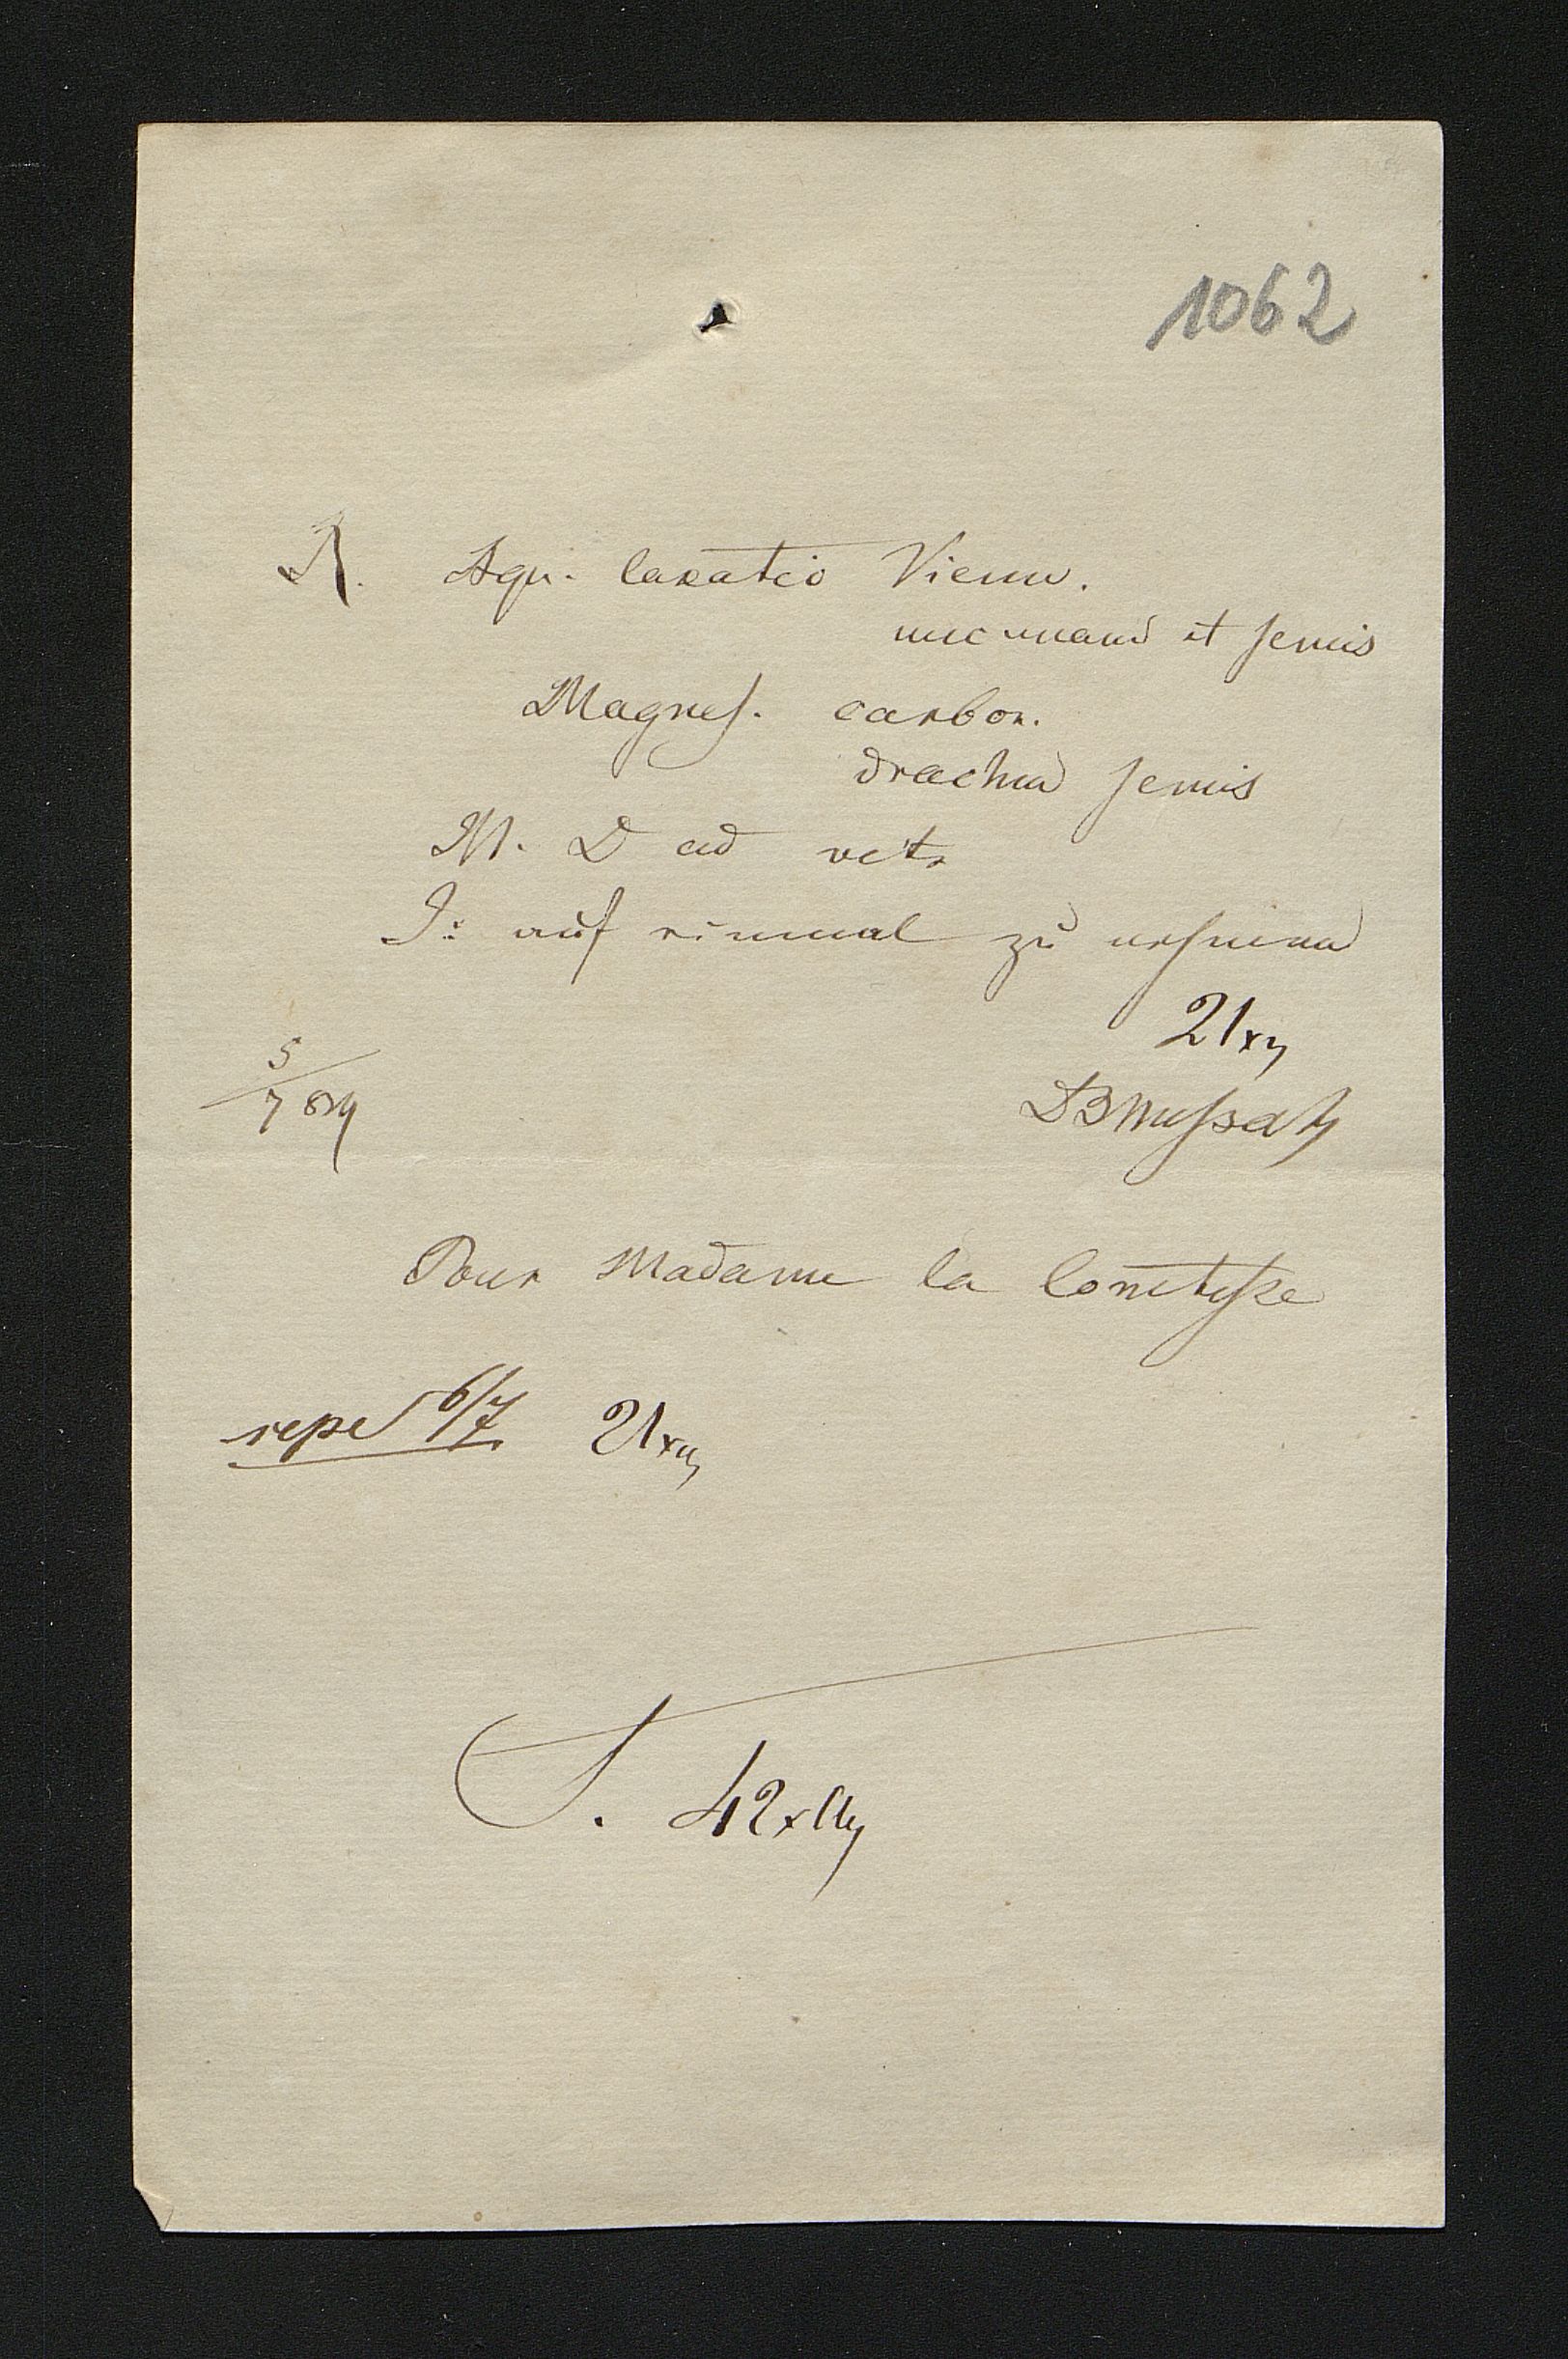 1062
R. Aqu. laxativ Vienn.
unc unam et semis
Magnes. carbon.
drachm semis
M. D ad vitr
S: auf einmal zu nehmen
21x
5/7 859
Pour Madame la Comtesse
repet 6/7 21x
S. 42x